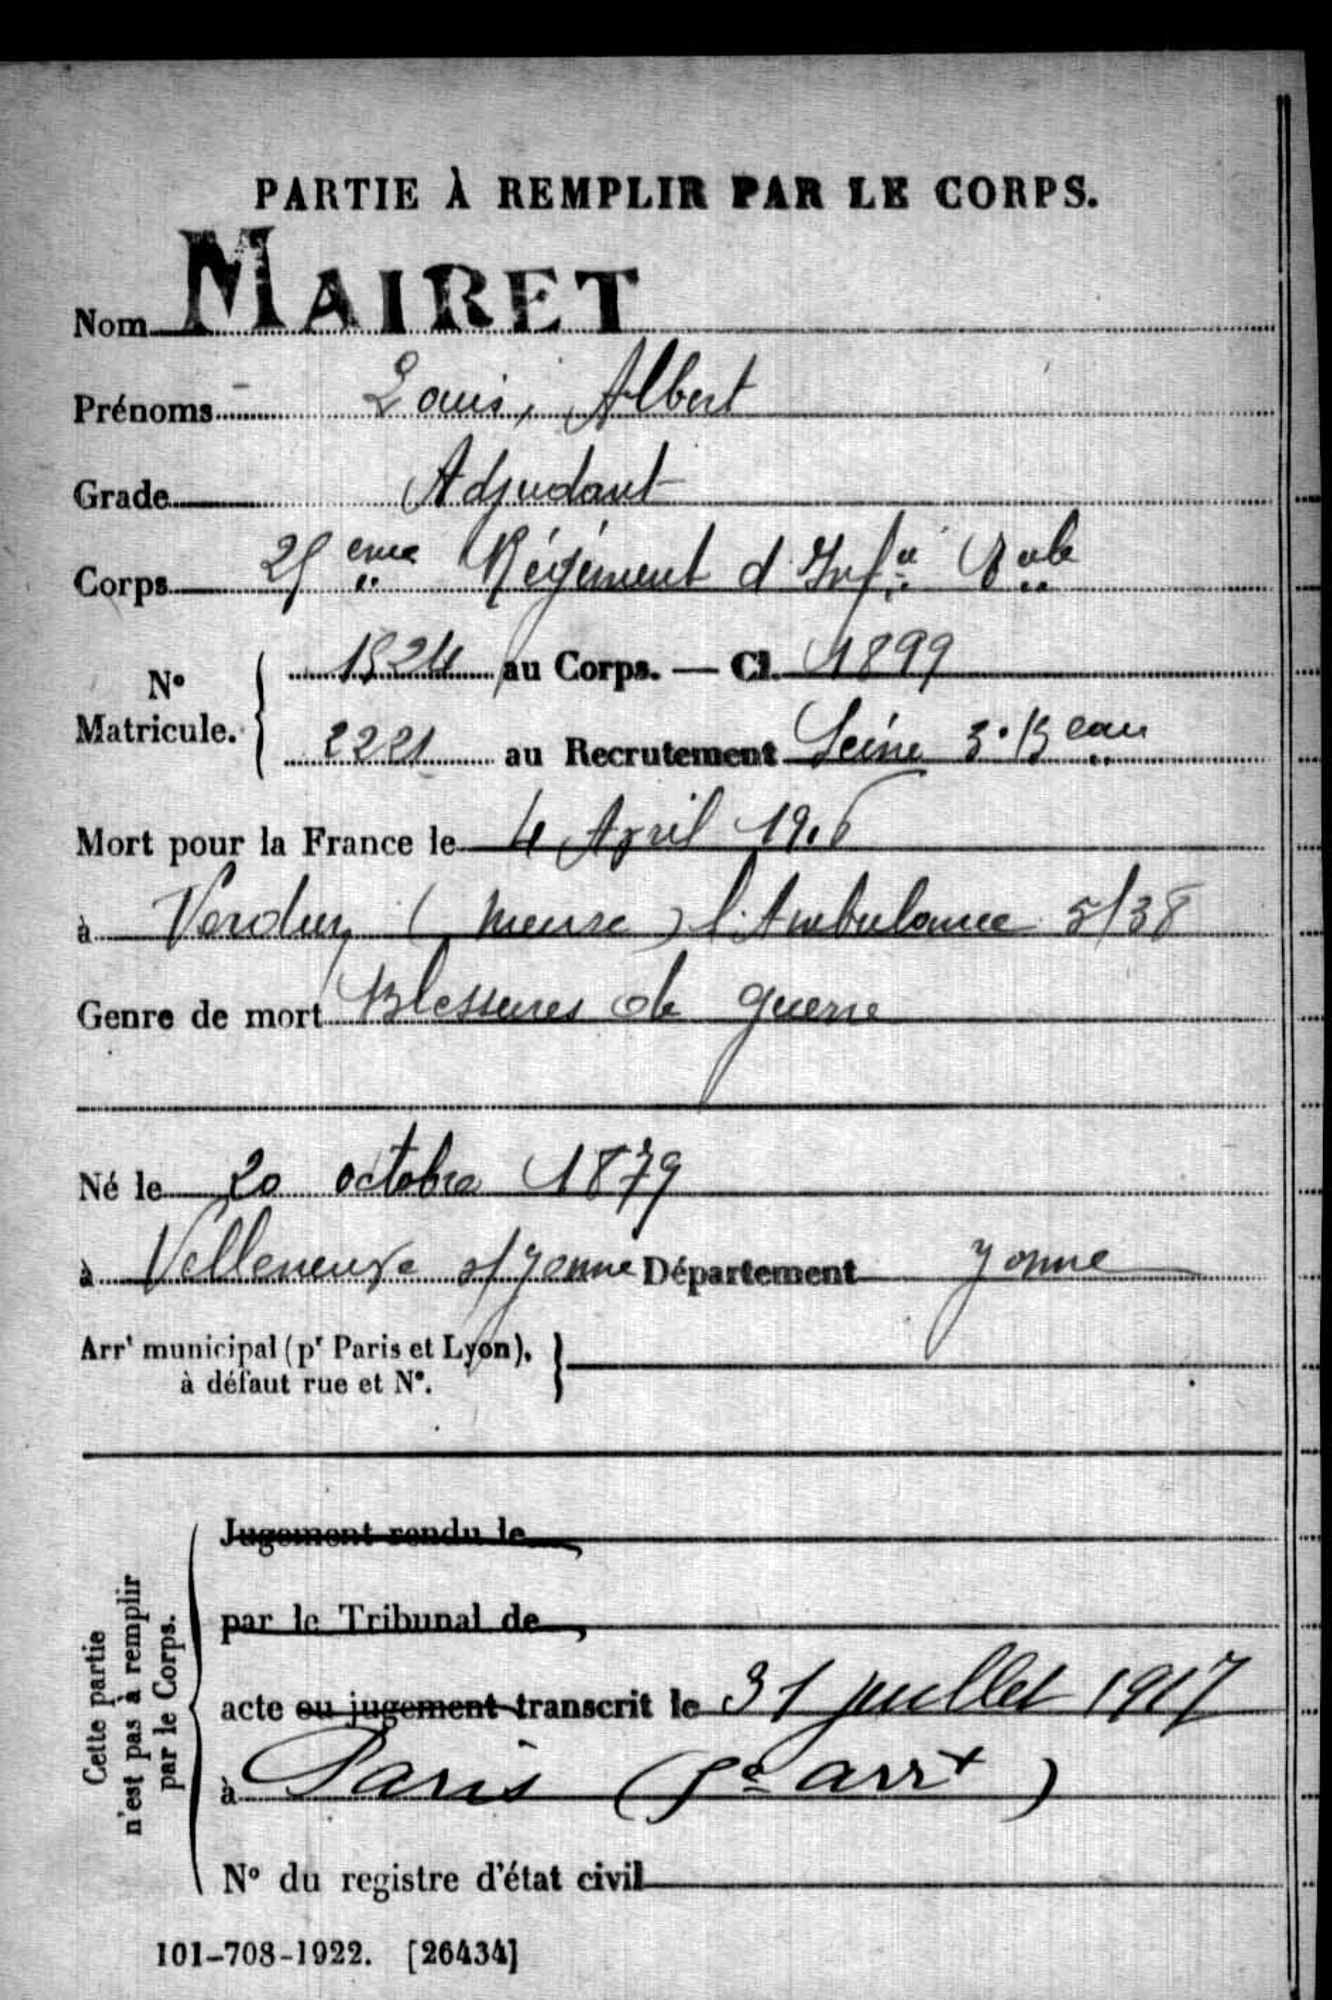 PARTIE À REMPLIR PAR LE CORPS.
Nom MAIRET
Prénoms Louis, Albert
Grade Adjudant
Corps 25 eme Régiment d'Inf ie
N° Matricule. 1524 au Corps. — Cl. 1899
2221 au Recrutement Seine 3e Beau
Mort pour la France le 4 April 1916
à Verdun (Meuse) l'Ambulance 5/38
Genre de mort Blessures de guerre
Né le 20 octobre 1879
à Villeneuve s/ Yonne Département Yonne
Arrt municipal (pr Paris et Lyon),
à défaut rue et N°.
Cette partie n'est pas à remplir par le Corps.
Jugement rendu le
par le Tribunal de
acte ou jugement transcrit le 31 juillet 1917
à Paris (5e arrt)
N° du registre d'état civil
101-708-1922. [26434]